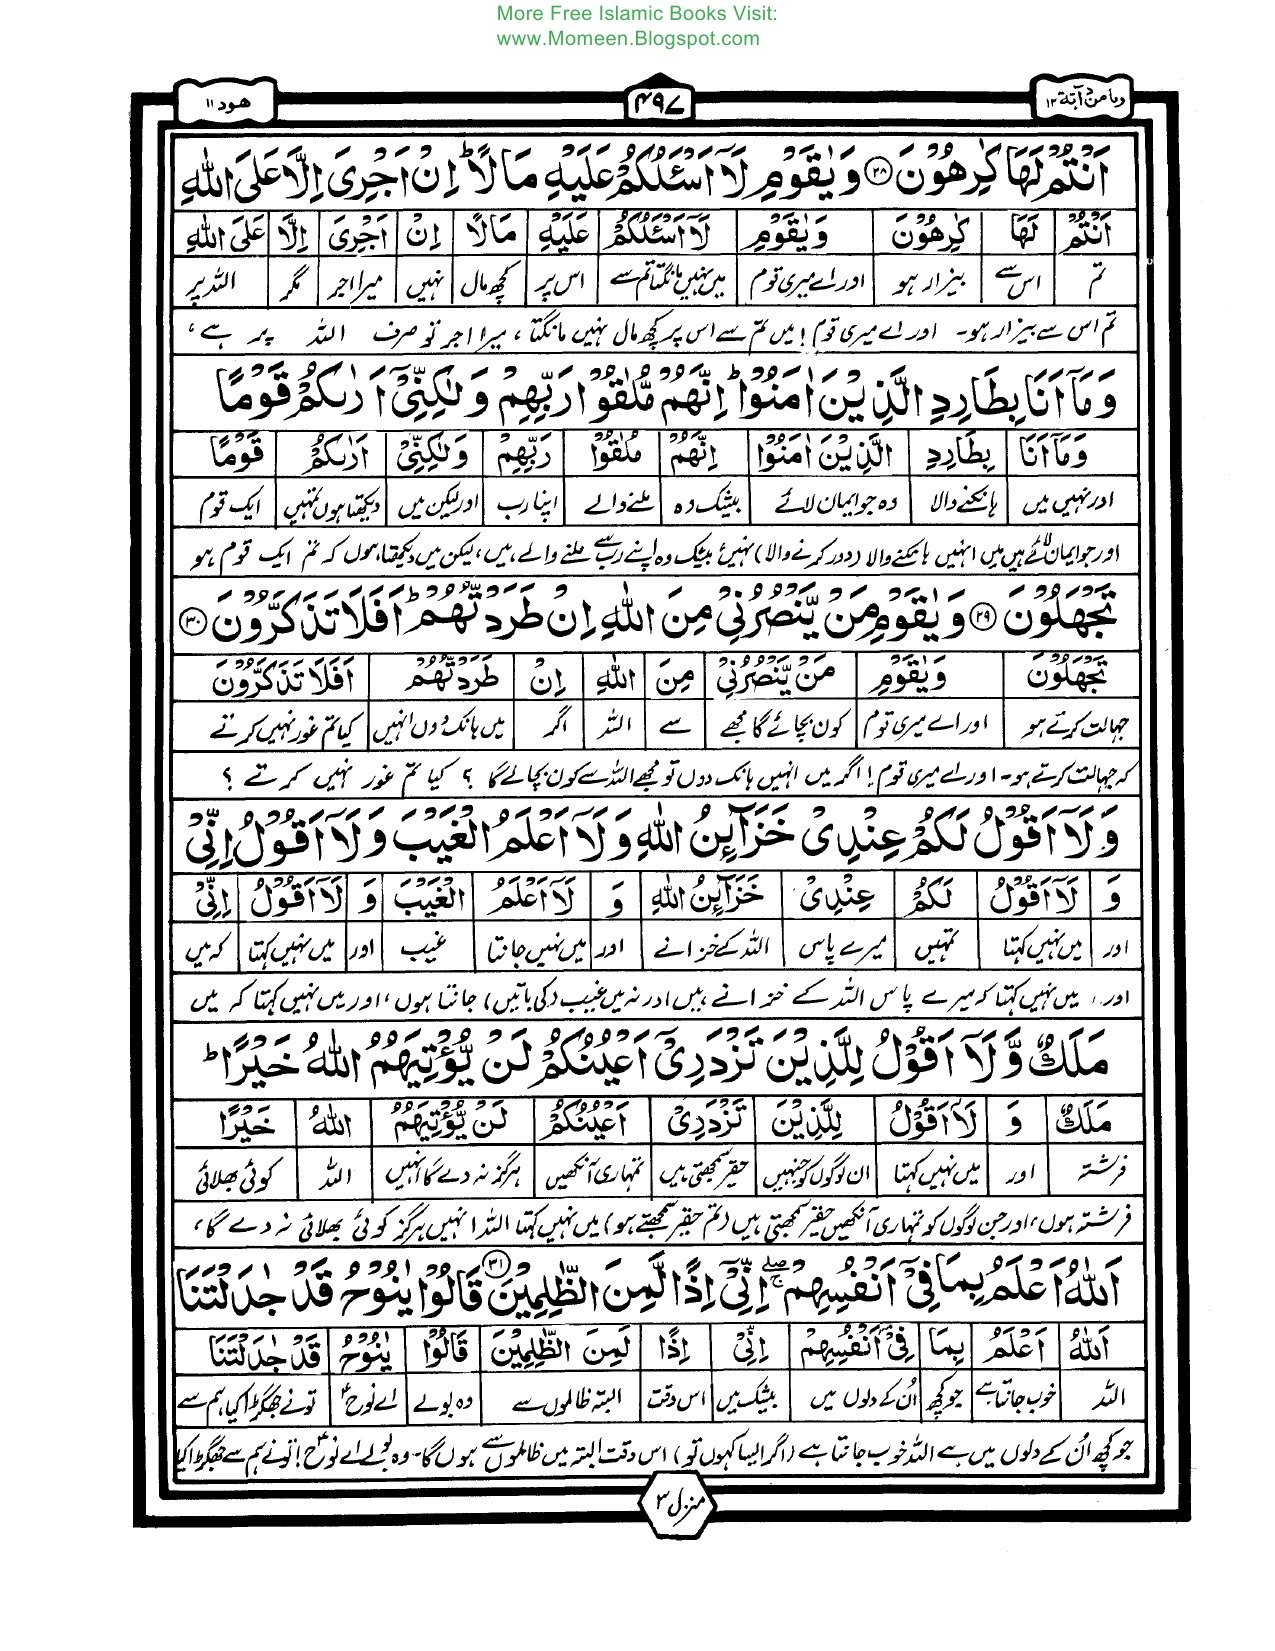 More Free Islamic Books Visit:
www.Momeen.Blogspot.com
وما من دآبة ۱۲
۴۹۷
هود ۱۱
اَنْتُمْ لَهَا كٰرِهُوْنَ ﴿۲۸﴾ وَيٰقَوْمِ لَاۤ اَسْـَٔلُكُمْ عَلَيْهِ مَالًا ؕ اِنْ اَجْرِىَ اِلَّا عَلَى اللّٰهِ
اَنْتُمْ لَهَا كٰرِهُوْنَ وَيٰقَوْمِ لَاۤ اَسْـَٔلُكُمْ عَلَيْهِ مَالًا اِنْ اَجْرِىَ اِلَّا عَلَى اللّٰهِ
تم اس سے بیزار ہو اور اے میری قوم میں نہیں مانگتا تم سے اس پر کچھ مال نہیں میرا اجر مگر اللہ پر
تم اس سے بیزار ہو۔ اور اے میری قوم! میں تم سے اس پر کچھ مال نہیں مانگتا، میرا اجر تو صرف اللہ پر ہے،
وَمَاۤ اَنَا بِطَارِدِ الَّذِيْنَ اٰمَنُوْا ؕ اِنَّهُمْ مُّلٰقُوْا رَبِّهِمْ وَلٰكِنِّىْۤ اَرٰىكُمْ قَوْمًا
وَمَاۤ اَنَا بِطَارِدِ الَّذِيْنَ اٰمَنُوْا اِنَّهُمْ مُلٰقُوْا رَبِّهِمْ وَلٰكِنِّىْۤ اَرٰىكُمْ قَوْمًا
اور نہیں میں ہانکنے والا وہ جو ایمان لائے بیشک وہ ملنے والے اپنا رب اور لیکن میں دیکھتا ہوں تمہیں ایک قوم
اور جو ایمان لائے ہیں میں انہیں ہانکنے والا (دور کرنے والا) نہیں، بیشک وہ اپنے رب سے ملنے والے ہیں، لیکن میں دیکھتا ہوں کہ تم ایک قوم ہو
تَجْهَلُوْنَ ﴿۲۹﴾ وَيٰقَوْمِ مَنْ يَّنْصُرُنِىْ مِنَ اللّٰهِ اِنْ طَرَدْتُّهُمْ ؕ اَفَلَا تَذَكَّرُوْنَ ﴿۳۰﴾
تَجْهَلُوْنَ وَيٰقَوْمِ مَنْ يَّنْصُرُنِىْ مِنَ اللّٰهِ اِنْ طَرَدْتُّهُمْ اَفَلَا تَذَكَّرُوْنَ
جہالت کرتے ہو اور اے میری قوم کون بچائے گا مجھے سے اللہ اگر میں ہانک دوں انہیں کیا تم غور نہیں کرتے
کہ جہالت کرتے ہو۔ اور اے میری قوم! اگر میں انہیں ہانک دوں تو مجھے اللہ سے کون بچالے گا؟ کیا تم غور نہیں کرتے؟
وَلَاۤ اَقُوْلُ لَكُمْ عِنْدِىْ خَزَآئِنُ اللّٰهِ وَلَاۤ اَعْلَمُ الْغَيْبَ وَلَاۤ اَقُوْلُ اِنِّىْ
وَ لَاۤ اَقُوْلُ لَكُمْ عِنْدِىْ خَزَآئِنُ اللّٰهِ وَ لَاۤ اَعْلَمُ الْغَيْبَ وَ لَاۤ اَقُوْلُ اِنِّىْ
اور میں نہیں کہتا تمہیں میرے پاس اللہ کے خزانے اور میں نہیں جانتا غیب اور میں نہیں کہتا کہ میں
اور میں نہیں کہتا کہ میرے پاس اللہ کے خزانے ہیں اور نہ میں غیب (کی باتیں) جانتا ہوں، اور میں نہیں کہتا کہ میں
مَلَكٌ وَّلَاۤ اَقُوْلُ لِلَّذِيْنَ تَزْدَرِىْۤ اَعْيُنُكُمْ لَنْ يُّؤْتِيَهُمُ اللّٰهُ خَيْرًا ؕ
مَلَكٌ وَ لَاۤ اَقُوْلُ لِلَّذِيْنَ تَزْدَرِىْۤ اَعْيُنُكُمْ لَنْ يُّؤْتِيَهُمْ اللّٰهُ خَيْرًا
فرشتہ اور میں نہیں کہتا ان لوگوں کو جنہیں حقیر سمجھتی ہیں تمہاری آنکھیں ہرگز نہ دے گا انہیں اللہ کوئی بھلائی
فرشتہ ہوں، اور جن لوگوں کو تمہاری آنکھیں حقیر سمجھتی ہیں (تم حقیر سمجھتے ہو) میں نہیں کہتا اللہ انہیں ہرگز کوئی بھلائی نہ دے گا،
اَللّٰهُ اَعْلَمُ بِمَا فِىْۤ اَنْفُسِهِمْ ۖۚ اِنِّىْۤ اِذًا لَّمِنَ الظّٰلِمِيْنَ ﴿۳۱﴾ قَالُوْا يٰنُوْحُ قَدْ جٰدَلْتَنَا
اَللّٰهُ اَعْلَمُ بِمَا فِىْۤ اَنْفُسِهِمْ اِنِّىْۤ اِذًا لَمِنَ الظّٰلِمِيْنَ قَالُوْا يٰنُوْحُ قَدْ جٰدَلْتَنَا
اللہ خوب جانتا ہے جو کچھ اُن کے دلوں میں بیشک میں اس وقت البتہ ظالموں سے وہ بولے اے نوحؑ تونے جھگڑا کیا ہم سے
جو کچھ اُن کے دلوں میں ہے اللہ خوب جانتا ہے (اگر ایسا کہوں تو) اس وقت البتہ میں ظالموں سے ہوں گا۔ وہ بولے اے نوحؑ! تونے ہم سے جھگڑا کیا
منزل ۳